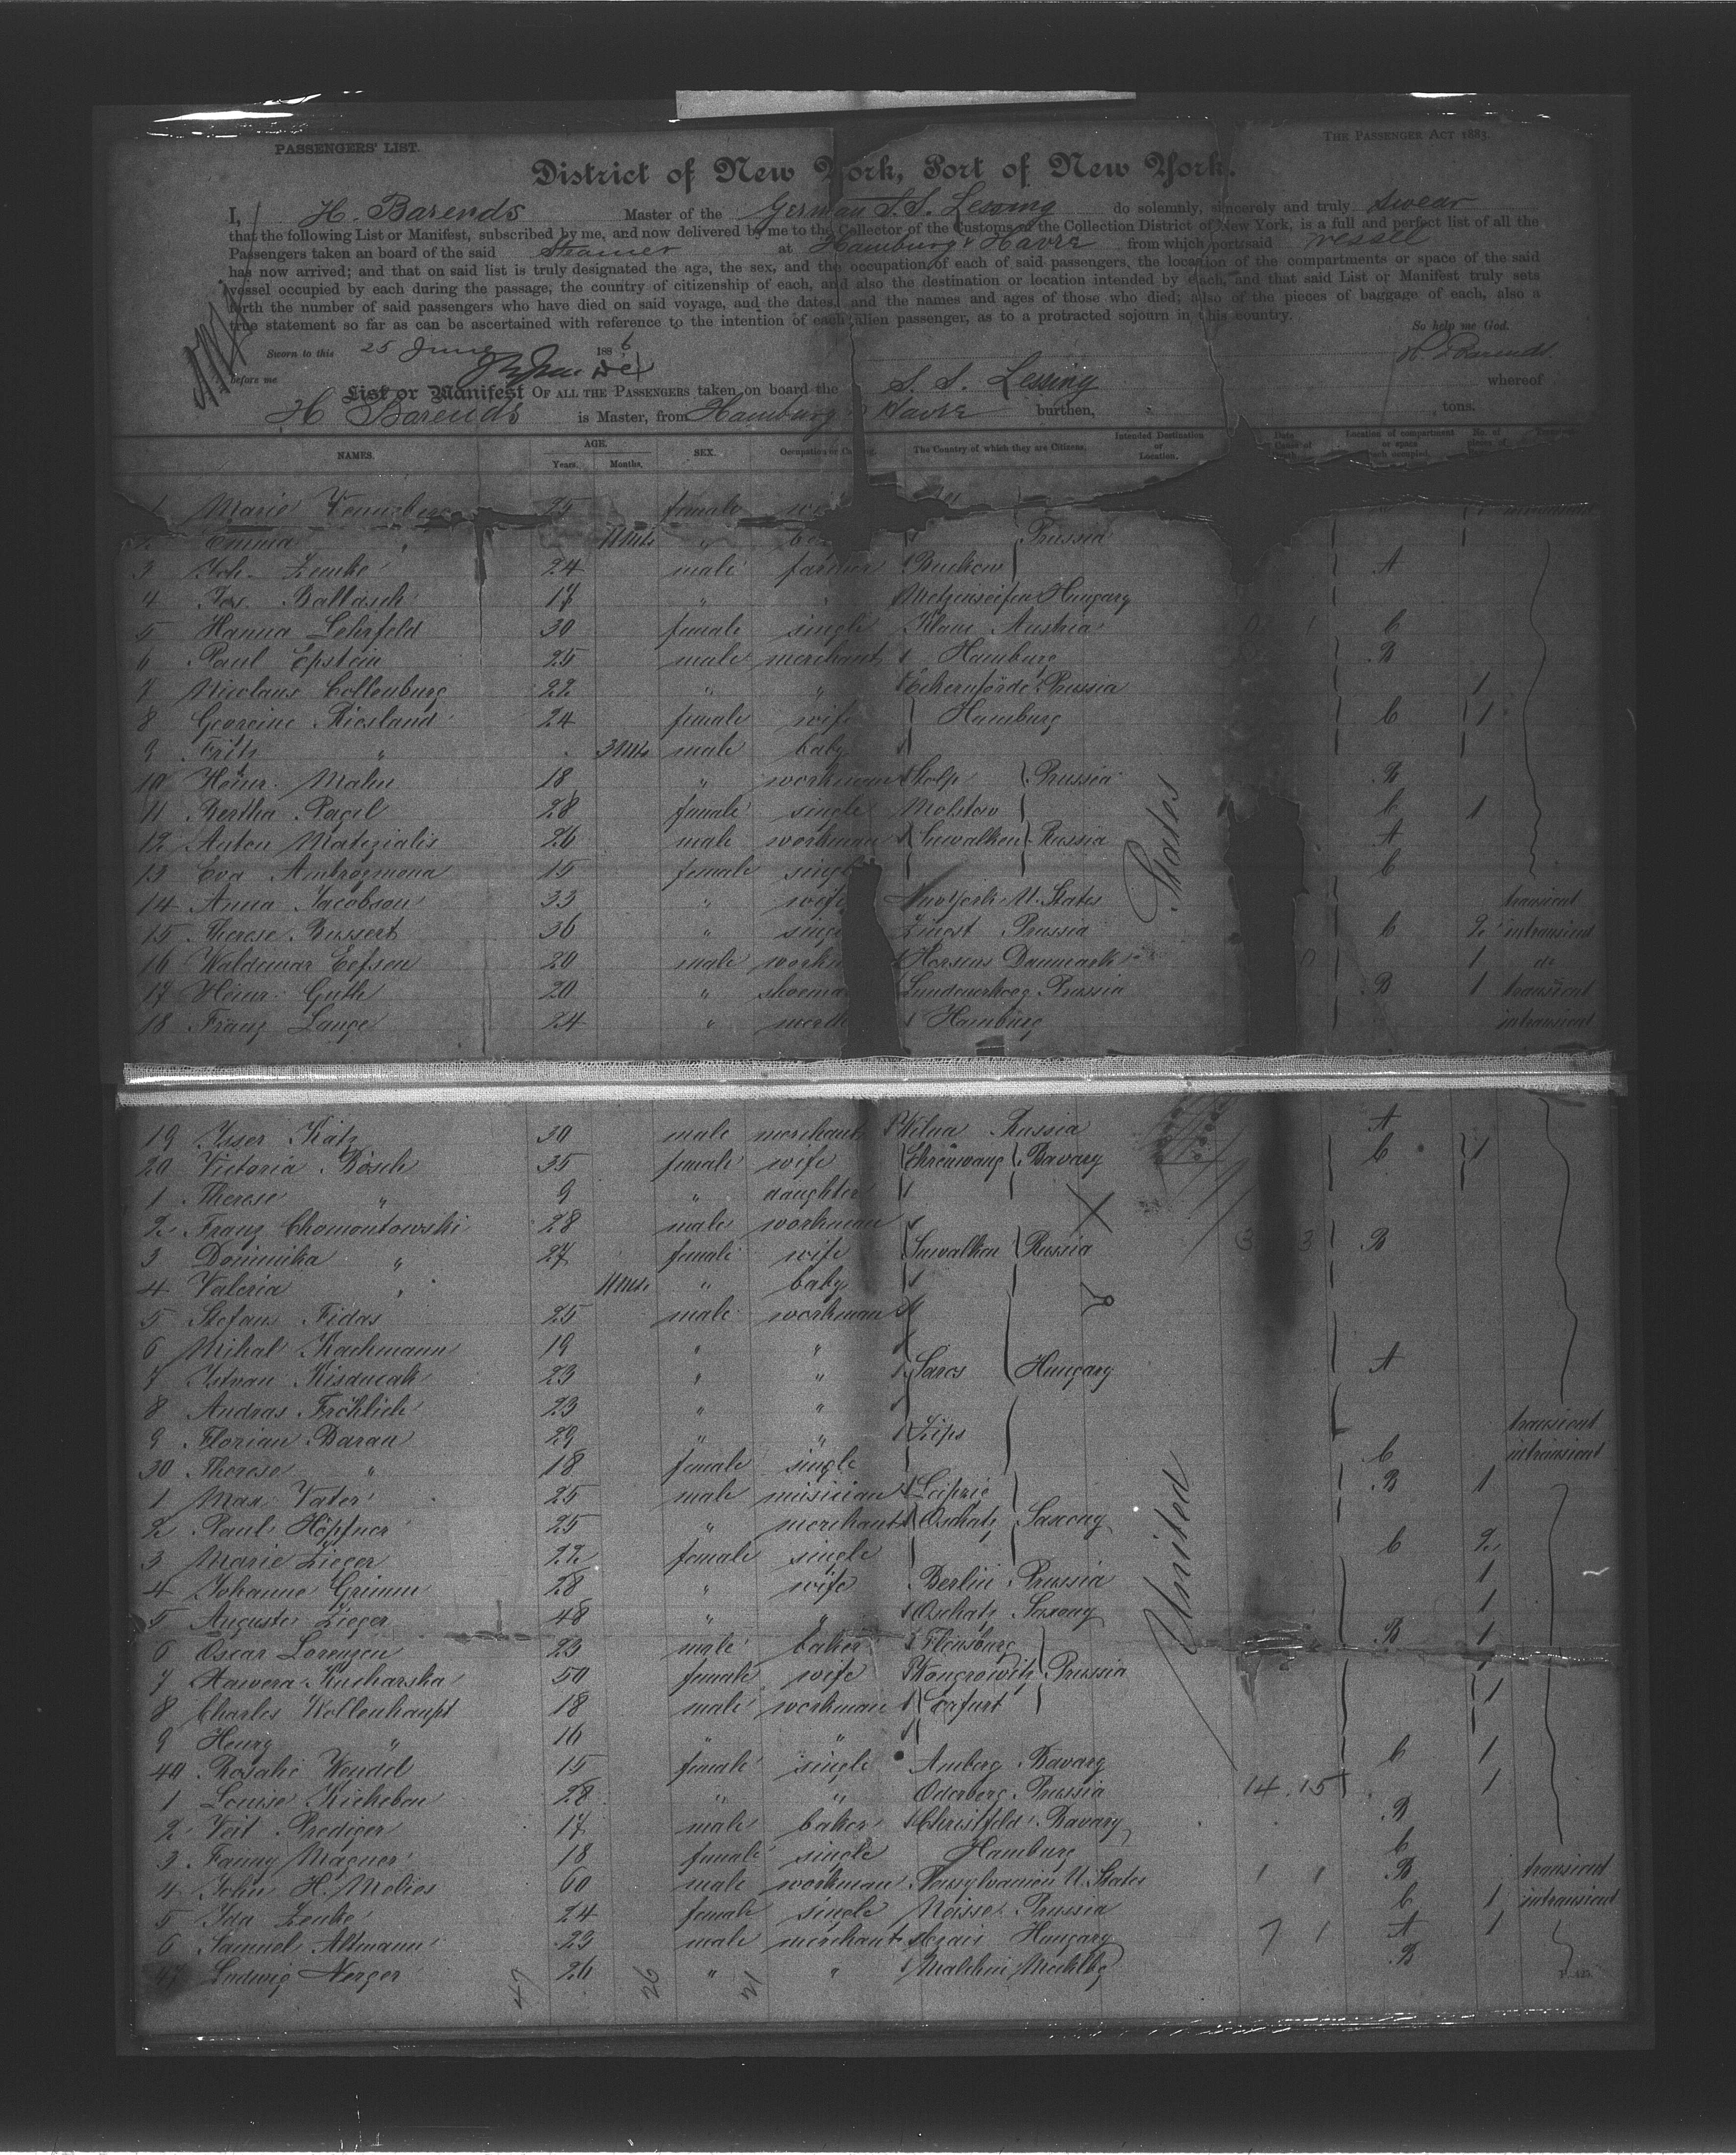 PASSENGERS' LIST.
THE PASSENGER ACT 1883.
District of New York, Port of New York.
I, H. Barends Master of the German S.S. Lessing do solemnly, sincerely and truly swear
that the following List or Manifest, subscribed by me, and now delivered by me to the Collector of the Customs of the Collection District of New York, is a full and perfect list of all the
Passengers taken on board of the said Steamer at Hamburg & Havre from which port said vessel
has now arrived; and that on said list is truly designated the age, the sex, and the occupation of each of said passengers, the location of the compartments or space of the said
vessel occupied by each during the passage, the country of citizenship of each, and also the destination or location intended by each, and that said List or Manifest truly sets
forth the number of said passengers who have died on said voyage, and the dates, and the names and ages of those who died; also of the pieces of baggage of each, also a
true statement so far as can be ascertained with reference to the intention of each alien passenger, as to a protracted sojourn in this country.
So help me God.
Sworn to this 25 June 1886 H. Barends
before me
List or Manifest OF ALL THE PASSENGERS taken on board the S. S. Lessing whereof
H Barends is Master, from Hamburg Havre burthen, tons.
NAMES. AGE. Years. Months. SEX. Occupation or The Country of which they are Citizens. Intended Destination or Location. Date Cause of Location of compartment or space occupied. No. of pieces of
1 Marie 25 female
2 Emma " 11 Mts " Prussia
3 Joh. Zemke 24 male farmer Buckow A
4 Jos. Baltasch 17 " " Metzenseifen Hungary
5 Hanna Lehrfeld 30 female single Austria C
6 Paul Epstein 25 male merchant Hamburg B
7 Nicolaus Collenburg 22 " " Eckernförde Prussia 1
8 Georgine Riesland 24 female wife Hamburg C 1
9 Fritz " 3 Mts male baby
10 Heinr. Malm 18 " workman Stolp Prussia B
11 Bertha Pagel 28 female single Molstow C 1
12 Anton Matizialis 26 male workman Suwalken Russia A
13 Eva Ambrozmona 15 female single C
14 Anna Jacobson 33 " wife New York U. States transient
15 Therese Bussert 36 " Zingst Prussia C 2 intransient
16 Waldemar Eefsen 20 male Horsens Danmark 1 do
17 Heinr. Guth 20 " Prussia B 1 transient
18 Franz Lange 24 " Hamburg intransient
States
19 Isser Katz 30 male merchant Wilna Russia A
20 Victoria Bösch 35 female wife Bavary C 1
1 Therese " 9 " daughter
2 Franz Chomontowski 28 male workman
3 Dominika " 27 female wife Suwalken Russia 3 3 B
4 Valeria " 11 Mts " baby
5 Stefan Fidas 25 male workman
6 Mihal Kachmann 19 " "
7 Istvan Kisducak 23 " " Saros Hungary A
8 Andras Fröhlich 23 " "
9 Florian Baran 29 " " Zips transient
30 Therese " 18 female single C intransient
1 Max Vater 25 male musician Leipzig B 1
2 Paul Höpfner 25 " merchant Oschatz Saxony
3 Marie Zieger 22 female single C 2
4 Johanne Grimm 28 " wife Berlin Prussia 1
5 Auguste Zieger 48 " " Oschatz Saxony 1
6 Oscar Lorenzen 23 male baker Flensburg B 1
7 Hawera Kucharska 50 female wife Wongrowitz Prussia
8 Charles Wollenhaupt 18 male workman Erfurt 1
9 Henry " 16 " "
40 Rosalie Wendel 15 female single Amberg Bavary C 1
1 Louise Kicheben 28 " " Oderberg Prussia 14 15 1
2 Veit Prediger 17 male baker Christfeld Bavary B
3 Fanny Magner 18 female single Hamburg C
4 John H. Molies 60 male workman U. States 1 1 B transient
5 Ida Zenke 24 female single Neisse Prussia C 1 intransient
6 Samuel Altmann 23 male merchant Hungary 7 1 A 1
47 Ludwig Nerger 26 " " Malchin Mecklbg B
United
47 26 21